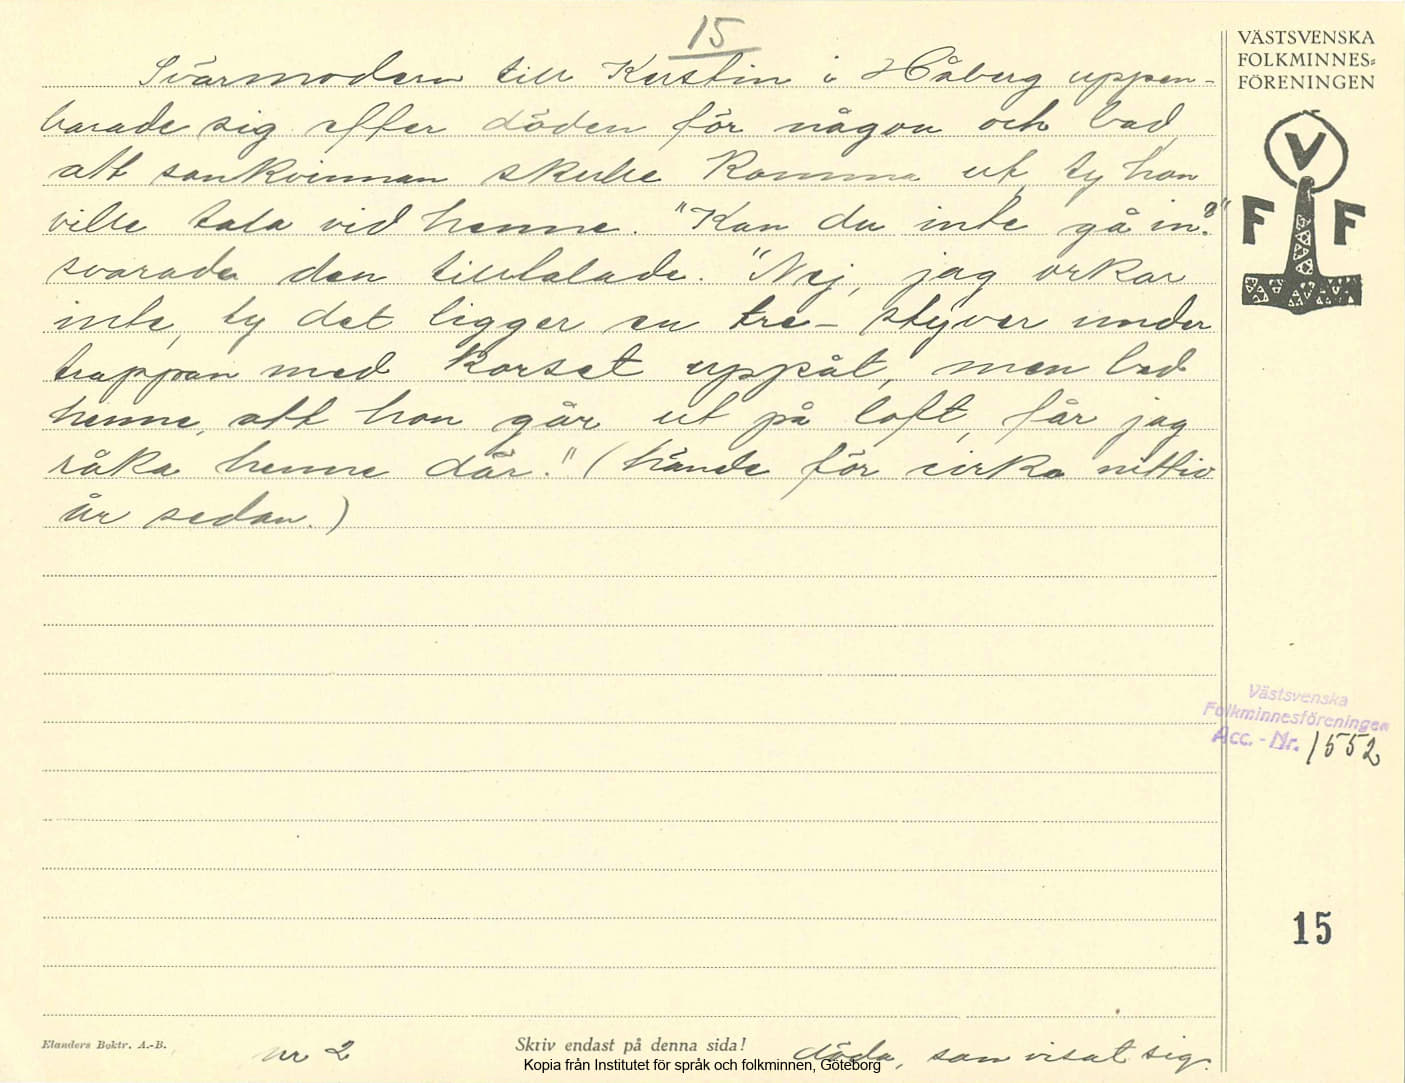 15
Svärmodern till Kerstin i Håberg uppen-
barade sig efter döden för någon och bad,
att sonkvinnan skulle komma ut, ty hon
ville tala vid henne. "Kan du inte gå in?"
svarade den tilltalade. "Nej, jag orkar
inte, ty det ligger en tre-styver under
trappan med korset uppåt, men bed
henne, att hon går ut på loft, får jag
råka henne där." (hände för cirka nittio
år sedan.)
VÄSTSVENSKA
FOLKMINNES=
FÖRENINGEN
V
F F
Västsvenska
Folkminnesföreningen
Acc.-Nr. 1552
15
Elanders Boktr. A.-B.
nr 2
Skriv endast på denna sida!
döda, som visat sig.
Kopia från Institutet för språk och folkminnen, Göteborg